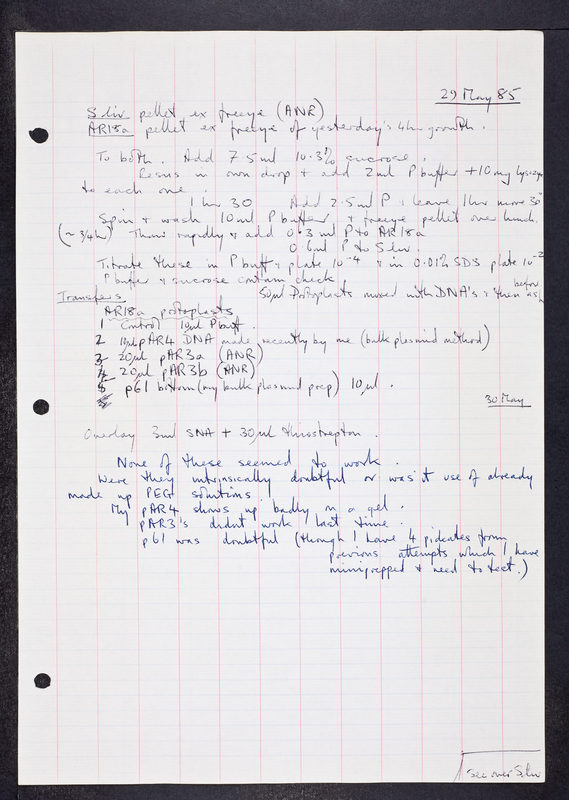 29 May 85
S. liv pellet ex freeze (ANR)
AR18a pellet ex freeze of yesterday's 4hr growth.
To both. Add 7.5ml 10.3% sucrose.
Resus in own drop & add 2ml P buffer + 10mg lysozyme
to each one.
1 hr 30 Add 2.5ml P & leave 1hr more 30°
Spin & wash 10ml P buffer & freeze pellet over lunch.
(~ 3/4h) Thaw rapidly & add 0.3ml P to AR18a
0.6ml P to S liv.
Titrate these in P buff & plate 10-4 & in 0.01% SDS plate 10-2
P buffer & sucrose contam check
Transfers 50µl Protoplasts mixed with DNA's & then as before
AR18a protoplasts
1 Control 10µl P buff.
2 10µl pAR4 DNA made recently by me (bulk plasmid method)
3 20µl pAR3a (ANR)
4 20µl pAR3b (ANR)
5 p61 bottom (my bulk plasmid prep) 10µl.
30 May
Overlay 3ml SNA + 30µl thiostrepton.
None of these seemed to work.
Were they intrinsically doubtful or was it use of already
made up PEG solutions
My pAR4 shows up badly on a gel.
pAR3's didnt work last time.
p61 was doubtful (though I have 4 picates from
previous attempts which I have
miniprepped & need to test.)
see over S. liv